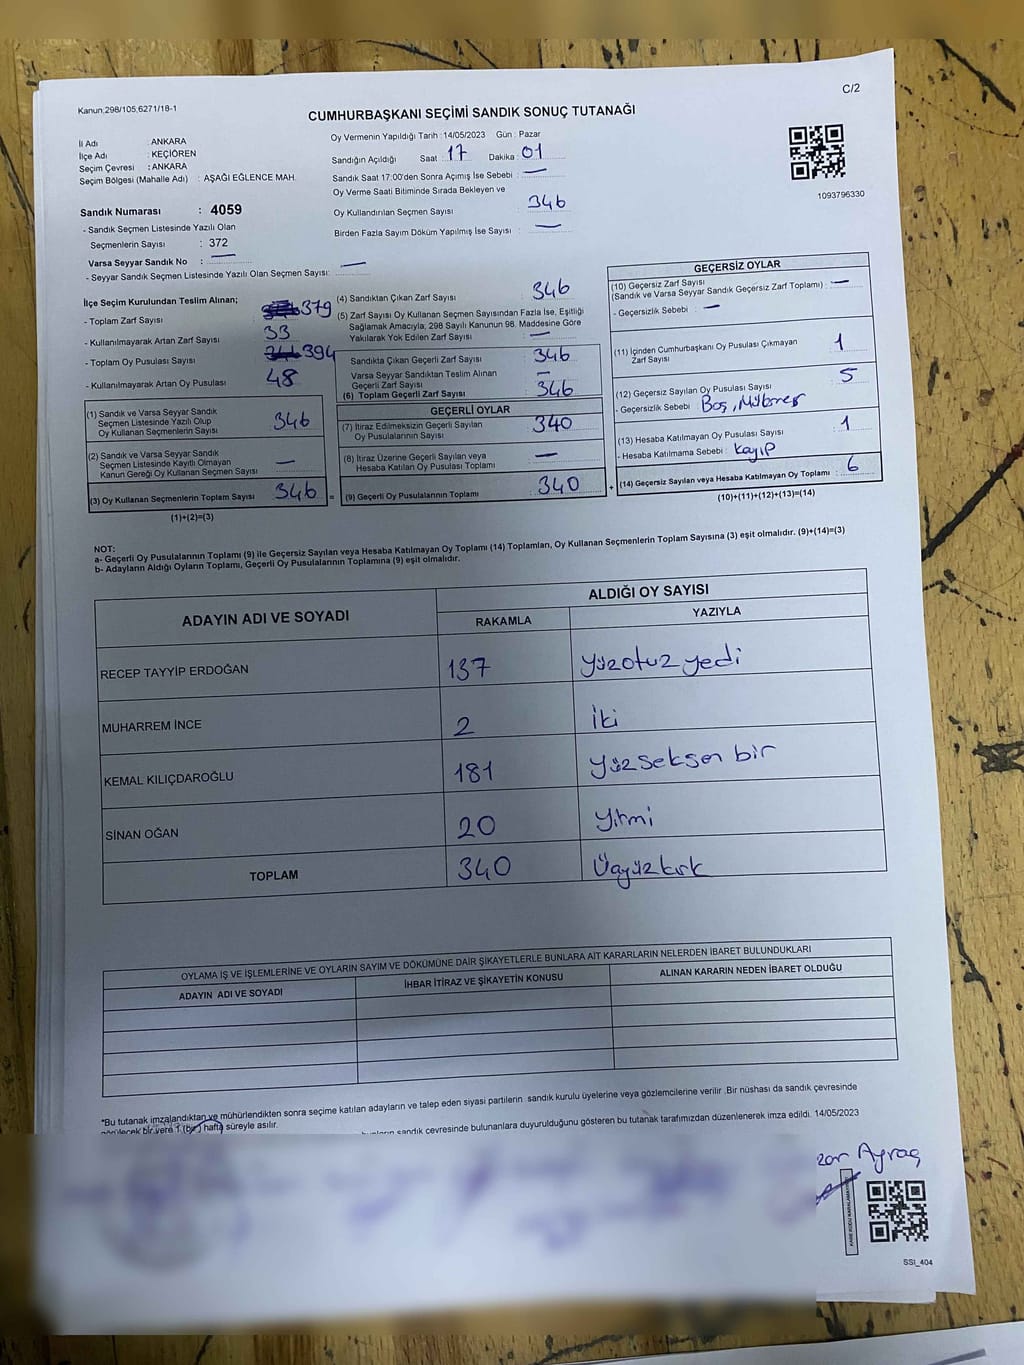 Kanun;298/105,6271/18-1
C/2
CUMHURBAŞKANI SEÇİMİ SANDIK SONUÇ TUTANAĞI
İl Adı : ANKARA
İlçe Adı : KEÇİÖREN
Seçim Çevresi : ANKARA
Seçim Bölgesi (Mahalle Adı) : AŞAĞI EĞLENCE MAH.
Oy Vermenin Yapıldığı Tarih : 14/05/2023 Gün : Pazar
Sandığın Açıldığı Saat : 17 Dakika : 01
Sandık Saat 17:00'den Sonra Açımış İse Sebebi : —
Oy Verme Saati Bitiminde Sırada Bekleyen ve
Oy Kullandırılan Seçmen Sayısı : 346
Birden Fazla Sayım Döküm Yapılmış İse Sayısı : —
1093796330
Sandık Numarası : 4059
- Sandık Seçmen Listesinde Yazılı Olan
Seçmenlerin Sayısı : 372
Varsa Seyyar Sandık No : —
- Seyyar Sandık Seçmen Listesinde Yazılı Olan Seçmen Sayısı: —
İlçe Seçim Kurulundan Teslim Alınan;
- Toplam Zarf Sayısı 379
- Kullanılmayarak Artan Zarf Sayısı 33
- Toplam Oy Pusulası Sayısı 394
- Kullanılmayarak Artan Oy Pusulası 48
(1) Sandık ve Varsa Seyyar Sandık
Seçmen Listesinde Yazılı Olup
Oy Kullanan Seçmenlerin Sayısı 346
(2) Sandık ve Varsa Seyyar Sandık
Seçmen Listesinde Kayıtlı Olmayan
Kanun Gereği Oy Kullanan Seçmen Sayısı —
(3) Oy Kullanan Seçmenlerin Toplam Sayısı 346 =
(1)+(2)=(3)
(4) Sandıktan Çıkan Zarf Sayısı : 346
(5) Zarf Sayısı Oy Kullanan Seçmen Sayısından Fazla İse, Eşitliği
Sağlamak Amacıyla, 298 Sayılı Kanunun 98. Maddesine Göre
Yakılarak Yok Edilen Zarf Sayısı : —
Sandıkta Çıkan Geçerli Zarf Sayısı : 346
Varsa Seyyar Sandıktan Teslim Alınan
Geçerli Zarf Sayısı : —
(6) Toplam Geçerli Zarf Sayısı : 346
GEÇERLİ OYLAR
(7) İtiraz Edilmeksizin Geçerli Sayılan
Oy Pusulalarının Sayısı : 340
(8) İtiraz Üzerine Geçerli Sayılan veya
Hesaba Katılan Oy Pusulası Toplamı : —
(9) Geçerli Oy Pusulalarının Toplamı : 340 +
GEÇERSİZ OYLAR
(10) Geçersiz Zarf Sayısı
(Sandık ve Varsa Seyyar Sandık Geçersiz Zarf Toplamı) : —
- Geçersizlik Sebebi : —
(11) İçinden Cumhurbaşkanı Oy Pusulası Çıkmayan
Zarf Sayısı : 1
(12) Geçersiz Sayılan Oy Pusulası Sayısı : 5
- Geçersizlik Sebebi : Boş,
(13) Hesaba Katılmayan Oy Pusulası Sayısı : 1
- Hesaba Katılmama Sebebi : kayıp
(14) Geçersiz Sayılan veya Hesaba Katılmayan Oy Toplamı : 6
(10)+(11)+(12)+(13)=(14)
NOT:
a- Geçerli Oy Pusulalarının Toplamı (9) ile Geçersiz Sayılan veya Hesaba Katılmayan Oy Toplamı (14) Toplamları, Oy Kullanan Seçmenlerin Toplam Sayısına (3) eşit olmalıdır. (9)+(14)=(3)
b- Adayların Aldığı Oyların Toplamı, Geçerli Oy Pusulalarının Toplamına (9) eşit olmalıdır.
ADAYIN ADI VE SOYADI ALDIĞI OY SAYISI
RAKAMLA YAZIYLA
RECEP TAYYİP ERDOĞAN 137 yüzotuz yedi
MUHARREM İNCE 2 İki
KEMAL KILIÇDAROĞLU 181 yüzseksen bir
SİNAN OĞAN 20 yirmi
TOPLAM 340 Üçyüzkırk
OYLAMA İŞ VE İŞLEMLERİNE VE OYLARIN SAYIM VE DÖKÜMÜNE DAİR ŞİKAYETLERLE BUNLARA AİT KARARLARIN NELERDEN İBARET BULUNDUKLARI
ADAYIN ADI VE SOYADI İHBAR İTİRAZ VE ŞİKAYETİN KONUSU ALINAN KARARIN NEDEN İBARET OLDUĞU
*Bu tutanak imzalandıktan ve mühürlendikten sonra seçime katılan adayların ve talep eden siyasi partilerin sandık kurulu üyelerine veya gözlemcilerine verilir .Bir nüshası da sandık çevresinde
görülecek bir yere 1 (bir) hafta süreyle asılır.
sandık çevresinde bulunanlara duyurulduğunu gösteren bu tutanak tarafımızdan düzenlenerek imza edildi. 14/05/2023
Ayraç
SSI_404